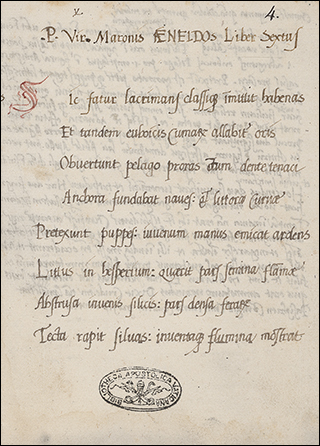 x 4.
P. Vir. Maronis ÆNEIDOS Liber Sextus
Sic fatur lacrimans classiq; immittit habenas
Et tandem euboicis cumarꝫ allabit oris
Obvertunt pelago proras dum dente tenaci
Anchora fundabat naves: littora curvæ
Pretexunt puppes: iuvenum manus emicat ardens
Littus in hesperium: querit pars semina flamæ
Abstrusa in venis silicis: pars densa ferarꝫ
Tecta rapit silvas: inventaq; flumina mostrat
BIBLIOTHECA APOSTOLICA VATICANA